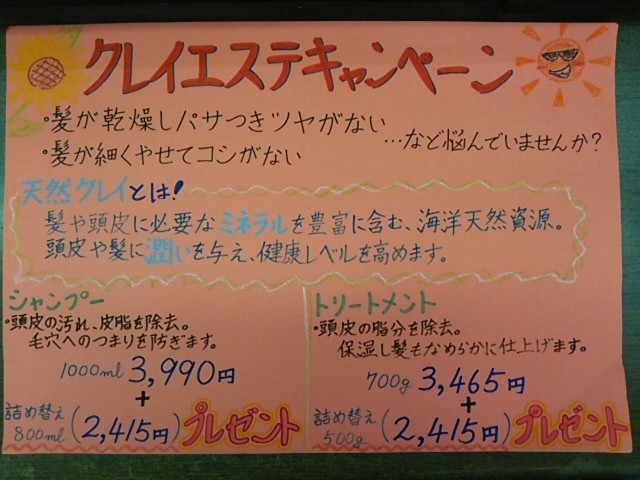 クレイエステキャンペーン
・髪が乾燥しパサつきツヤがない
・髪が細くやせてコシがない
…など悩んでいませんか?
天然クレイとは!
髪や頭皮に必要なミネラルを豊富に含む、海洋天然資源。
頭皮や髪に潤いを与え、健康レベルを高めます。
シャンプー
・頭皮の汚れ、皮脂を除去。
毛穴へのつまりを防ぎます。
1000ml 3,990円
+
詰め替え
800ml (2,415円) プレゼント
トリートメント
・頭皮の脂分を除去。
保湿し髪もなめらかに仕上げます。
700g 3,465円
+
詰め替え
500g (2,415円) プレゼント